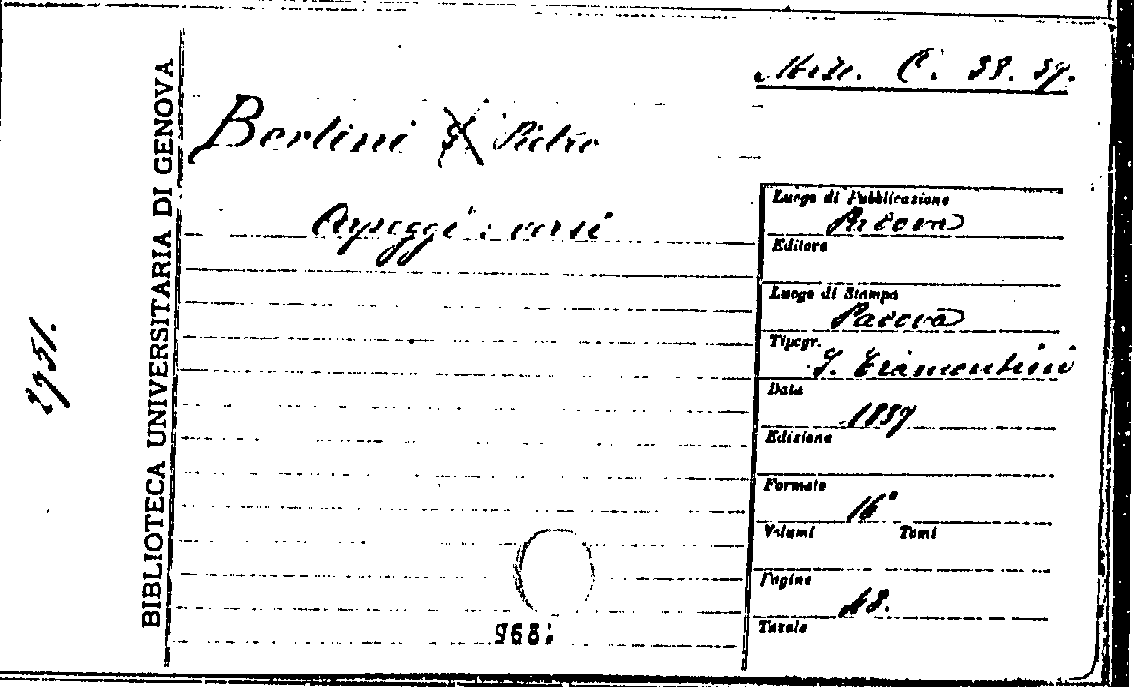 Misc. C. 38. 39.
Bertini G Pietro
Arpeggi : versi
BIBLIOTECA UNIVERSITARIA DI GENOVA
2951.
Luogo di Pubblicazione
Padova
Editore
Luogo di Stampa
Padova
Tipogr.
Data
1889
Edizione
Formato
16°
Volumi Tomi
Pagine
48.
Tavole
968